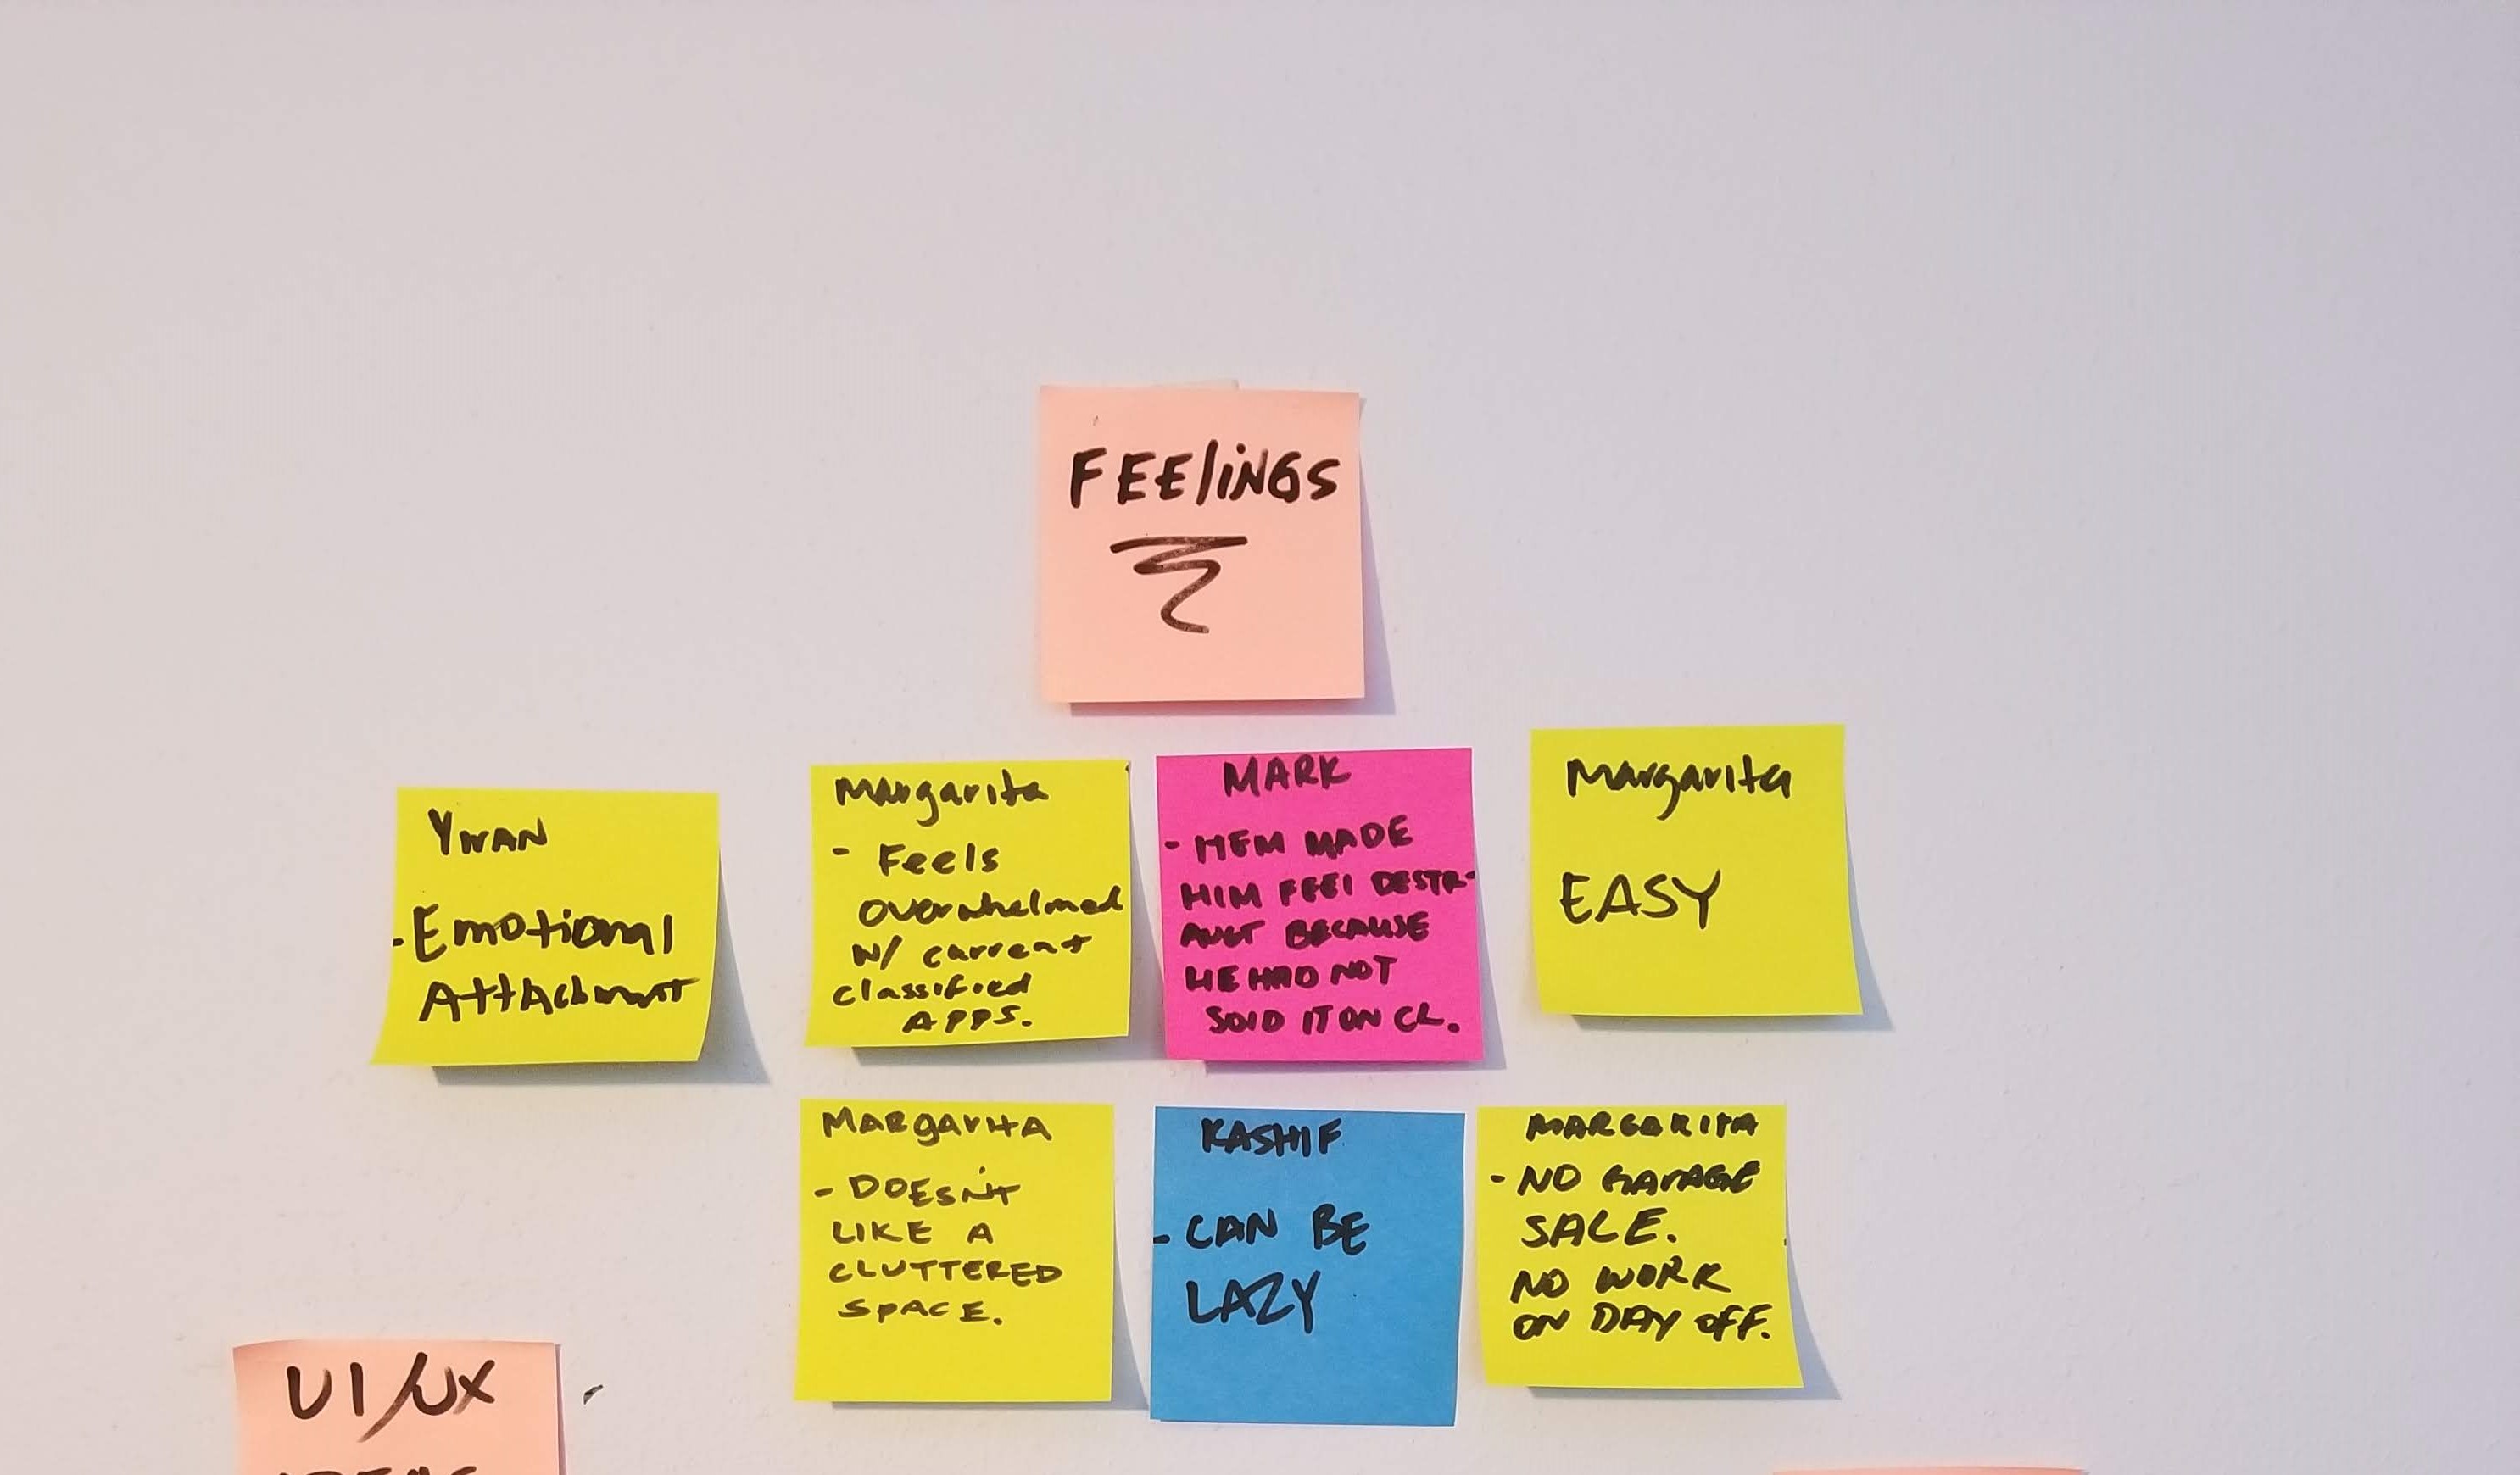 FEElINGS
YWAN
- Emotional
Attachment
Margarita
- Feels
overwhelmed
w/ current
classified
APPS.
MARK
- MEM MADE
HIM FEEl DESTR-
BECAUSE
HE HAD NOT
SOlD IT ON CL.
Margarita
EASY
MARGARITA
- DOESN'T
LIKE A
CLUTTERED
SPACE.
KASHIF
- CAN BE
LAZY
MARGARITA
- NO GARAGE
SALE.
NO WORK
ON DAY OFF.
UI/UX